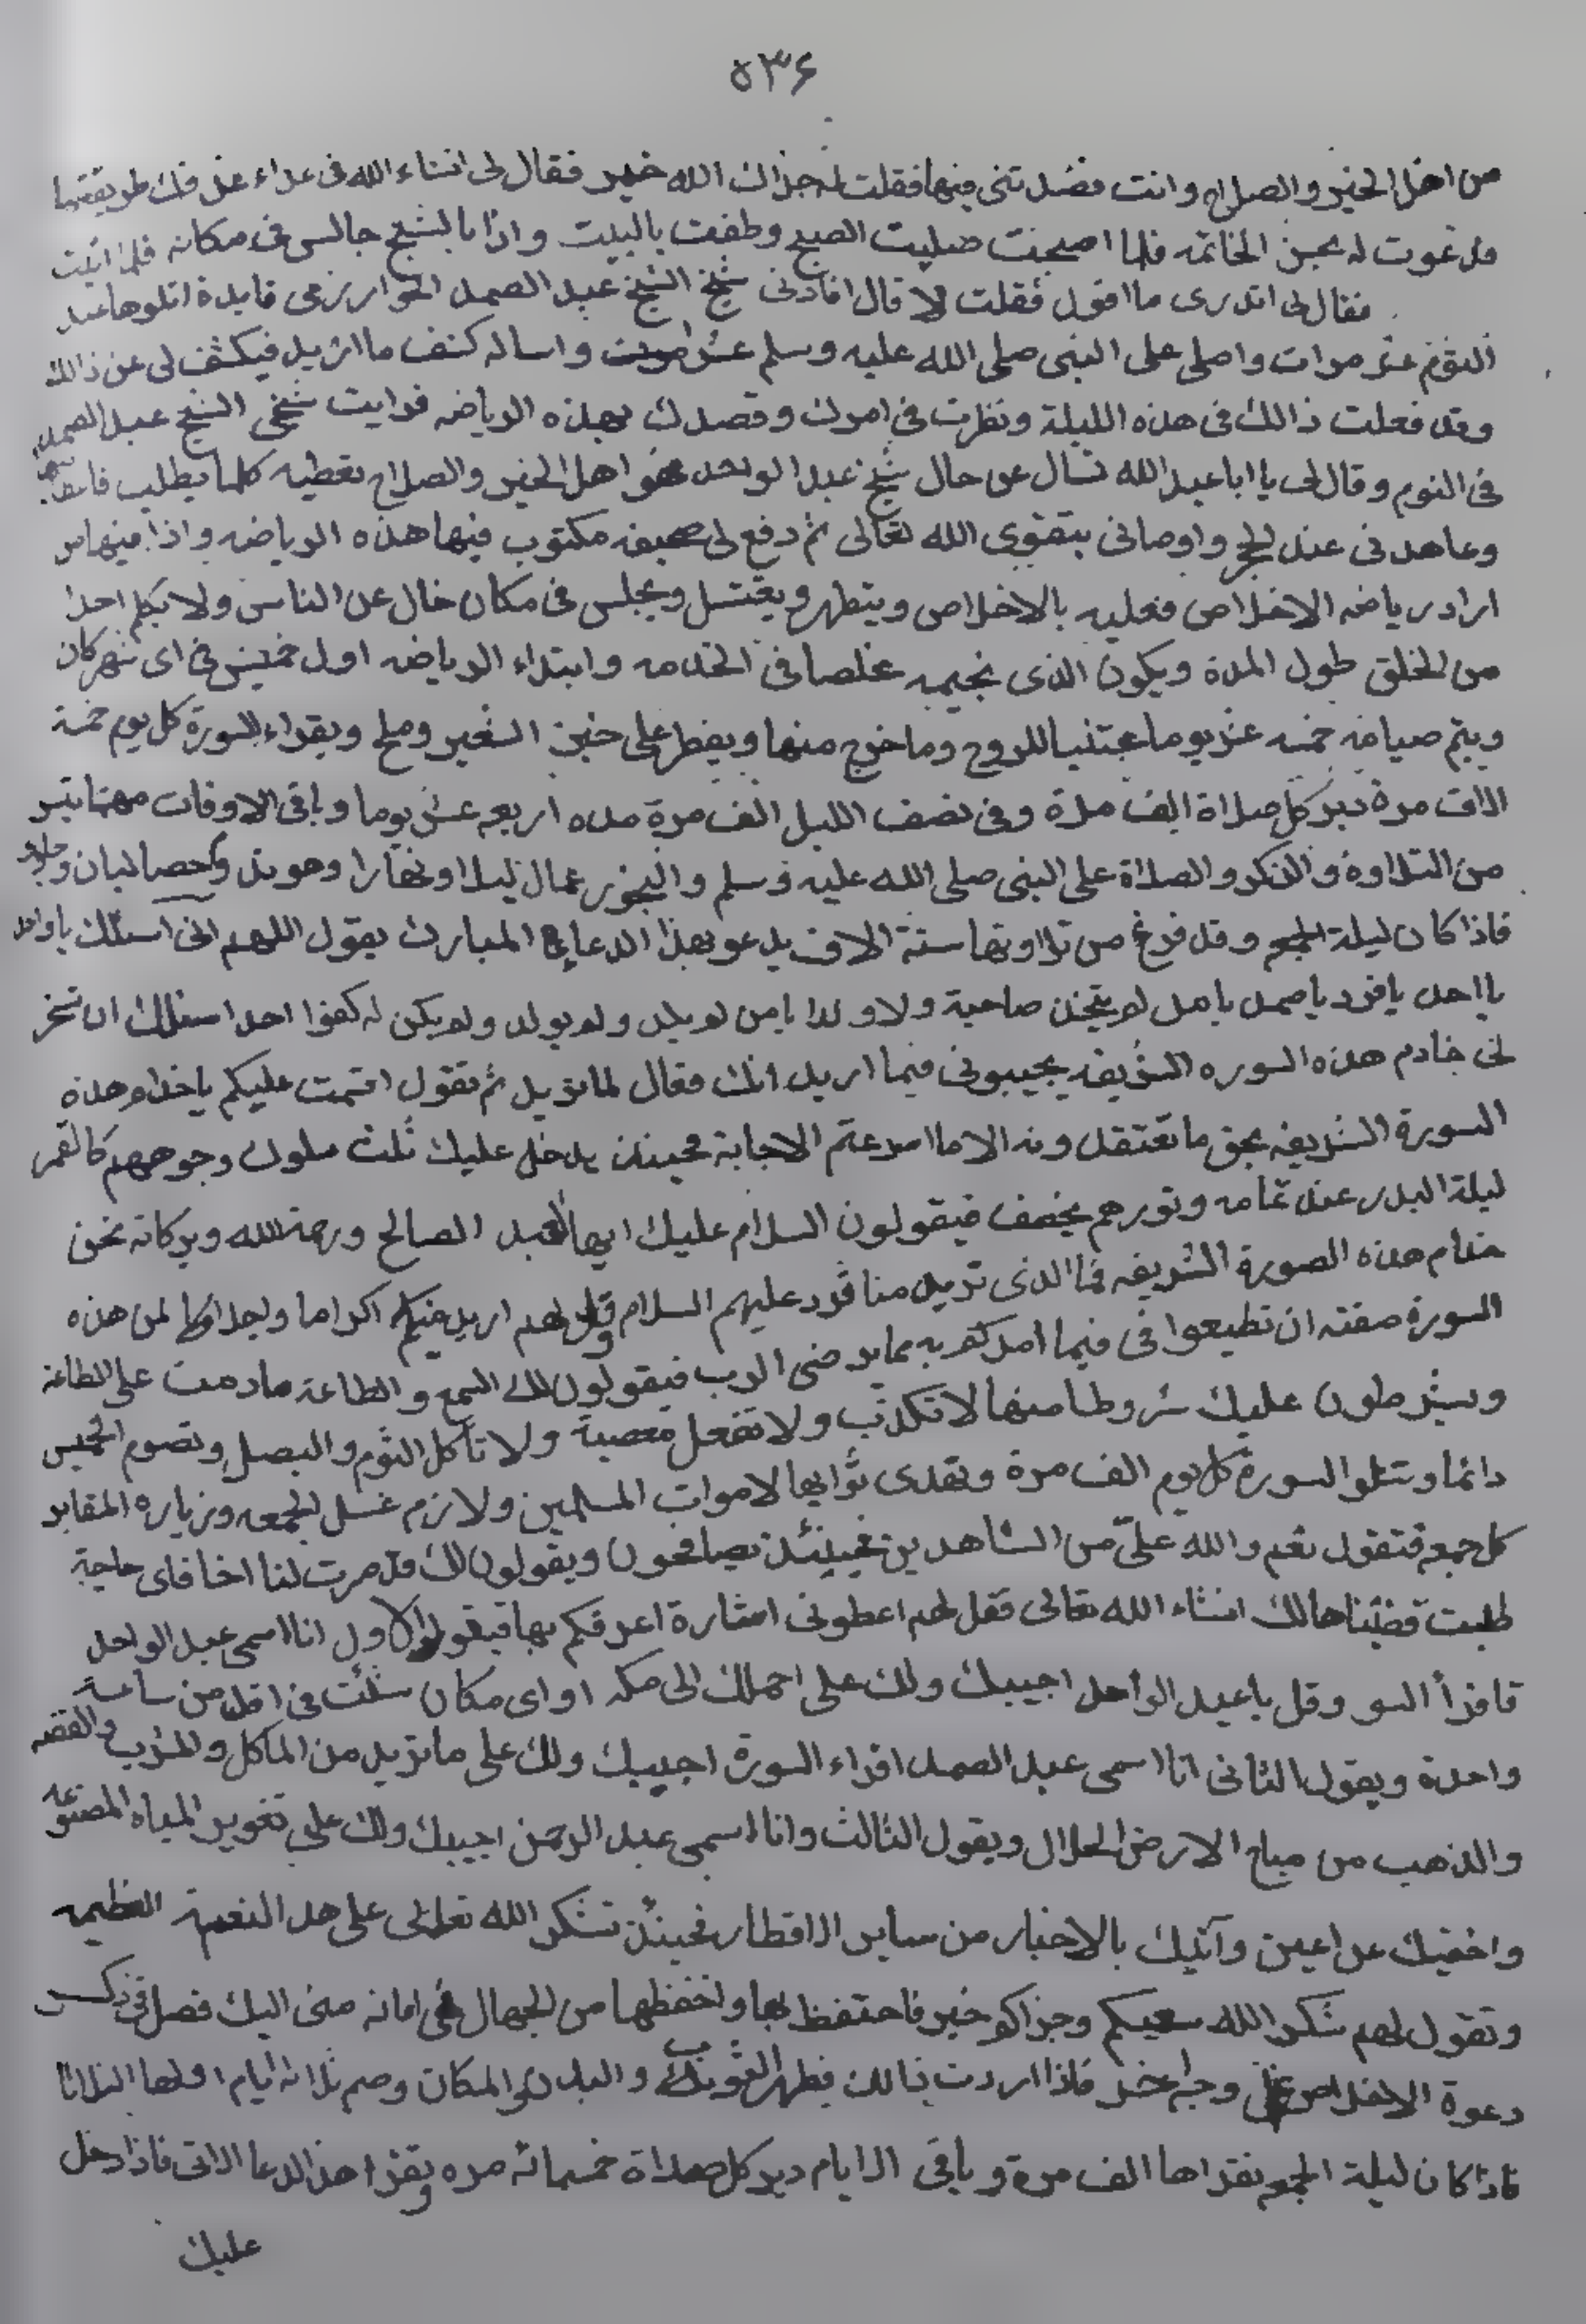 ٥٣۶
من اهل الخير والصلاح وانت قصدتنى فيها فقلت له جزاك الله خير فقال لى انشاء الله فى غداء عرفك طريقتها
فدعوت له بحسن الخاتمه فلما اصبحت صليت الصبح وطفت بالبيت واذا بالشيخ جالس فى مكانه فلما اتيت
فقال لى اتدرى ما اقول فقلت لا قال افادنى شيخ الشيخ عبد الصمد الخوارزمى فايدة اتلوها عند
النوم عشر مرات واصلى على النبى صلى الله عليه وسلم عشر مرات واساله كشف ما اريد فيكشف لى عن ذالك
وقد فعلت ذالك فى هذه الليلة ونظرت فى امرك وقصدك بهذه الرياضه فرايت شيخى الشيخ عبد الصمد
فى النوم وقال لى يا ابا عبد الله تسال عن حال شيخ عبد الواحد هو اهل الخير والصلاح تعطيه كلما يطلب
وعاهدنى عند الحجر واوصانى بتقوى الله تعالى ثم دفع لى صحيفه مكتوب فيها هذه الرياضه واذا فيها من
اراد رياضه الاخلاص فعليه بالاخلاص ويتطهر ويغتسل ويجلس فى مكان خال عن الناس ولا يكلم احدا
من الخلق طول المدة ويكون الذى يجيبه مخلصا فى الخدمه وابتداء الرياضه اول خميس فى اى شهر كان
ويتم صيامه خمسه عشر يوما مجتنبا للروح وما خرج منها ويفطر على خبز الشعير وملح ويقراء السورة كل يوم خمسة
الاف مرة دبر كل صلاة الف مرة وفى نصف الليل الف مرة مده اربعه عشر يوما وباقى الاوقات مهما تيسر
من التلاوة والذكر والصلاة على النبى صلى الله عليه وسلم والبخور عمال ليلا ونهارا وهو ند وحصالبان وجاوى
فاذا كان ليلة الجمعه وقد فرغ من تلاوتها ستة الاف يدعو بهذا الدعا المبارك يقول اللهم انى اسئلك يا واحد
يا احد يا فرد يا صمد يا من لم يتخذ صاحبة ولا ولدا يا من لم يلد ولم يولد ولم يكن له كفوا احد اسئلك ان تسخر
لى خادم هذه السوره الشريفه يجيبونى فيما اريد انك فعال لما تريد ثم تقول اقسمت عليكم يا خدام هذه
السورة الشريفه بحق ما تعتقدونه الا ما اسرعتم الاجابة فحينئذ يدخل عليك ثلث ملوك وجوههم كالقمر
ليلة البدر عند تمامه ونورهم يخطف فيقولون السلام عليك ايها العبد الصالح ورحمة الله وبركاته نحن
خدام هذه الصورة الشريفه فما الذى تريد منا فرد عليهم السلام وقل لهم اريد منكم اكراما واجلالا لمن هذه
السورة صفته ان تطيعوا فى فيما امركم به مما يرضى الرب فيقولون لك السمع والطاعة ما دمت على الطاعة
ويشرطون عليك شروطا منها لا تكذب ولا تفعل معصية ولا تاكل الثوم والبصل وتصوم الخميس
دائما وتتلو السورة كل يوم الف مرة وتهدى ثوابها لاموات المسلمين ولازم غسل الجمعه وزياره المقابر
كل جمعه فتقول نعم والله علىّ من الشاهدين فحينئذ يصافحون ويقولون لك قد صرت لنا اخا فاى حاجة
طلبت قضيناها لك انشاء الله تعالى فقل لهم اعطونى اشارة اعرفكم بها فيقول الاول انا اسمى عبد الواحد
فاقرأ السو وقل يا عبد الواحد اجيبك ولك على احملك الى مكه او اى مكان شئت فى اقل من ساعة
واحدة ويقول الثانى انا اسمى عبد الصمد اقراء السورة اجيبك ولك على ما تريد من الماكل والمشرب والفضه
والذهب من مباح الارض الحلال ويقول الثالث وانا اسمى عبد الرحمن اجيبك ولك على تغوير المياه المصنوعه
واخفيك عن اعين وآتيك بالاخبار من ساير الاقطار فحينئذ تشكر الله تعالى على هذ النعمة العظيمه
وتقول لهم شكر الله سعيكم وجزاكم خير فاحتفظ بها واحفظها من الجهال فى امانه منى اليك فصل فى ذكر
دعوة الاخلاص على وجه اخر فاذا اردت ذالك فطهر الثوب والبدن والمكان وصم ثلاثه ايام اولها الثلاثا
فاذا كان ليلة الجمعه تقراها الف مرة وباقى الايام دبر كل صلاة خمسمائه مره وتقرا هذ الدعا الاتى فاذا دخل
عليك